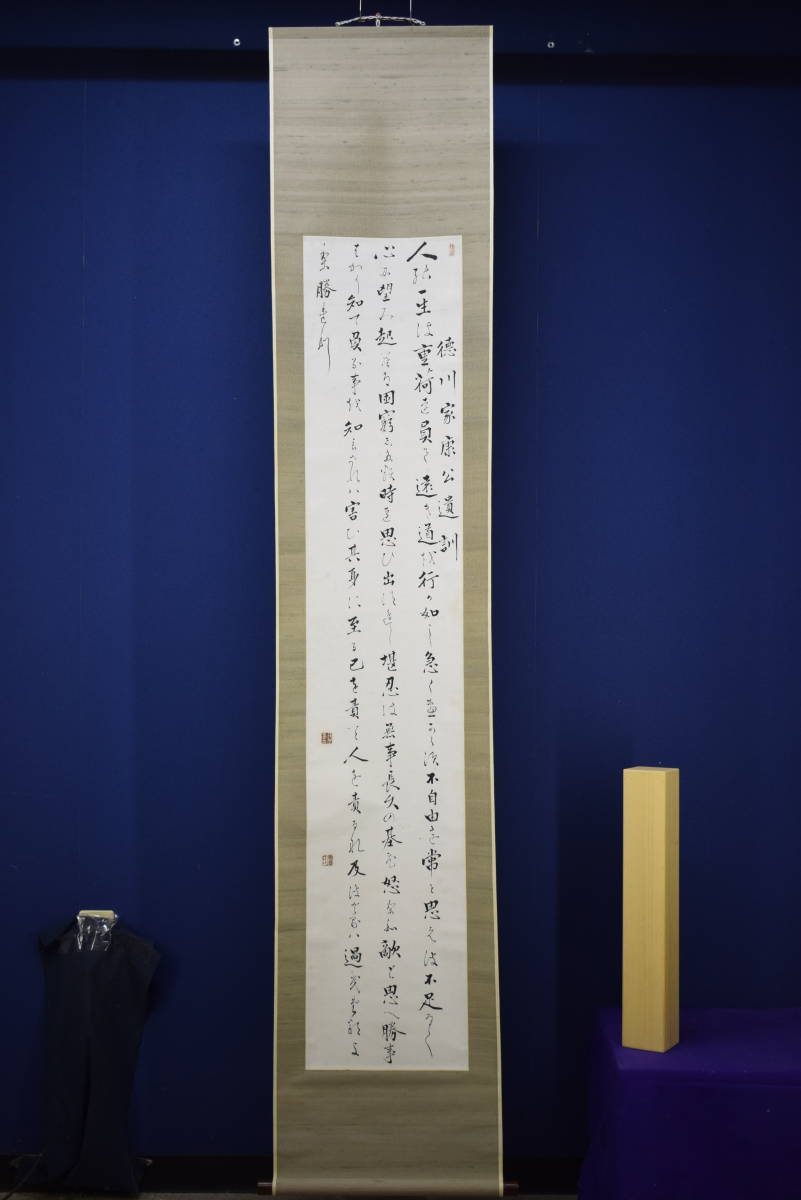 德川家康公遺訓
人の一生は重荷を負て遠き道を行か如し急くへからす不自由を常と思えは不足なく
心に望み起らは困窮したる時を思ひ出すへし堪忍は無事長久の基怒は敵と思へ勝事
はかり知て負る事を知らされは害其身に至る己を責て人を責るな及はさるは過たるよ
り勝れり